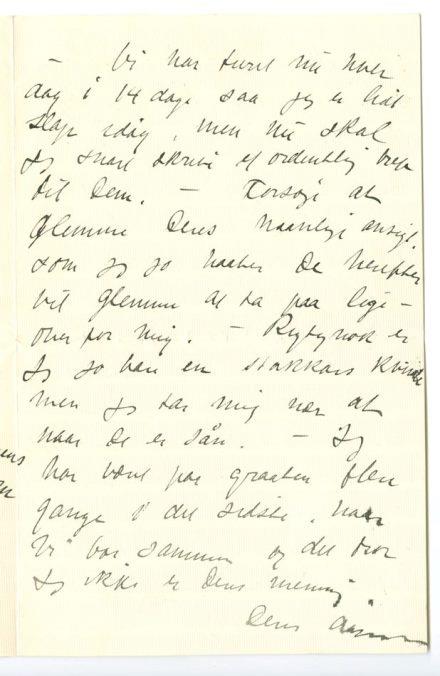 – Vi har turet nu hver
dag i 14 dage saa jeg er helt
slap idag, men nu skal
jeg snart skrive et ordentlig brev
til Dem. – Forsøg at
glemme Deres haanlige ansigt,
som jeg jo haaber De herefter
vil glemme at ta paa lige –
over for mig. – Rigtignok er
jeg jo bare en stakkars kvinde
men jeg tar mig nær at
naar De er sån. – Jeg
har vært paa graaten flere
gange i det sidste, naar
vi var sammen og det tror
jeg ikke er Deres mening
Deres